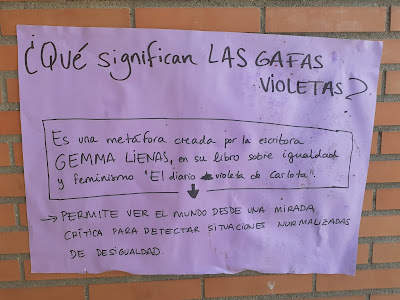 ¿Qué significan LAS GAFAS
VIOLETAS?
Es una metáfora creada por la escritora
GEMMA LIENAS, en su libro sobre igualdad
y feminismo "El diario violeta de Carlota".
→ PERMITE VER EL MUNDO DESDE UNA MIRADA
CRÍTICA PARA DETECTAR SITUACIONES NORMALIZADAS
DE DESIGUALDAD.